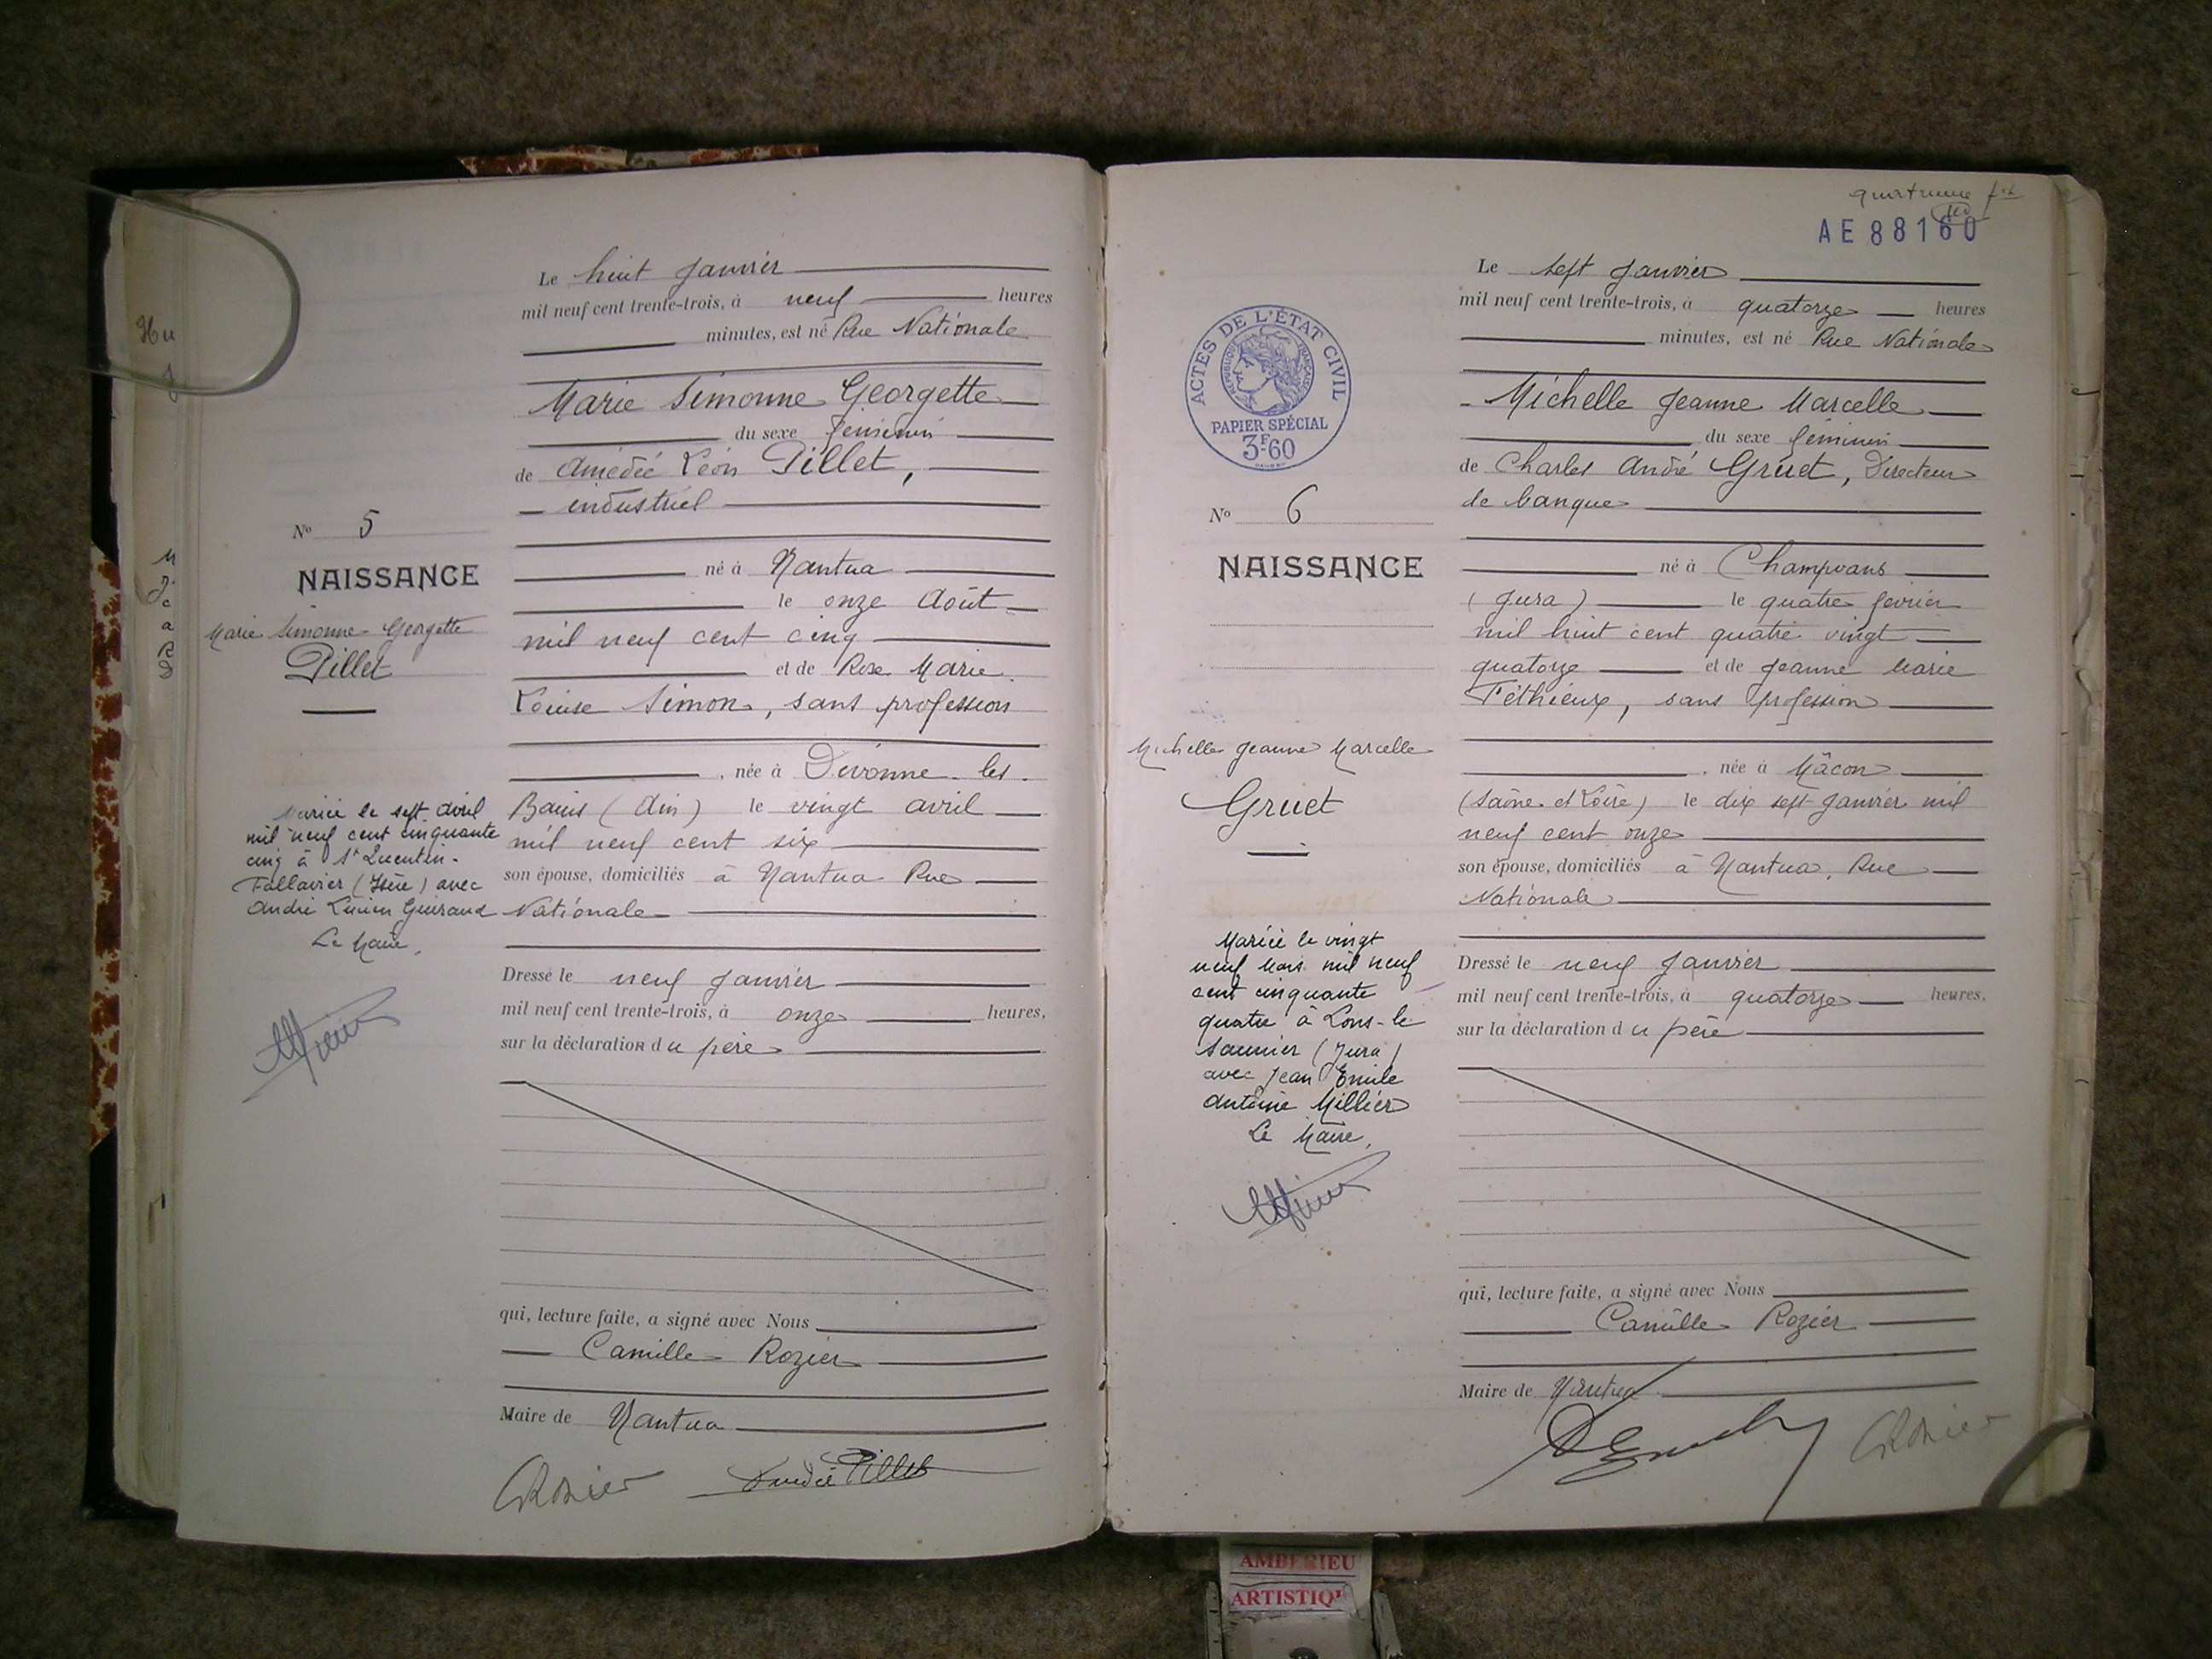 Le huit Janvier
mil neuf cent trente-trois, à neuf heures
minutes, est né Rue Nationale
Marie Simonne Georgette
du sexe féminin
de Amédée Léon Pillet,
industriel
né à Nantua
le onze Août
mil neuf cent cinq
et de Rose Marie
Louise Simon, sans profession
, née à Divonne-les-
Bains (Ain) le vingt avril
mil neuf cent six
son épouse, domiciliés à Nantua Rue
Nationale
Dressé le neuf Janvier
mil neuf cent trente-trois, à onze heures,
sur la déclaration du père
qui, lecture faite, a signé avec Nous
Camille Rozier
Maire de Nantua
CRozier
Amédée Pillet
No 5
NAISSANCE
Marie Simonne Georgette
Pillet
Mariée le sept avril
mil neuf cent cinquante
cinq à St Quentin-
Fallavier (Isère) avec
André Lucien Guiraud
Le Maire,
quatrième
AE 88160
Le sept Janvier
mil neuf cent trente-trois, à quatorze heures
minutes, est né Rue Nationale
Michelle Jeanne Marcelle
du sexe féminin
de Charles André Gruet, Directeur
de banque
né à Champvans
(Jura) le quatre février
mil huit cent quatre vingt
quatorze et de Jeanne Marie
Téthieux, sans profession
, née à Mâcon
(Saône et Loire) le dix sept Janvier mil
neuf cent onze
son épouse, domiciliés à Nantua, Rue
Nationale
Dressé le neuf Janvier
mil neuf cent trente-trois, à quatorze heures,
sur la déclaration du père
qui, lecture faite, a signé avec Nous
Camille Rozier
Maire de Nantua
CRozier
ACTES DE L'ÉTAT CIVIL
RÉPUBLIQUE FRANÇAISE
PAPIER SPÉCIAL
3F60
No 6
NAISSANCE
Michelle Jeanne Marcelle
Gruet
Mariée le vingt
neuf Mars mil neuf
cent cinquante
quatre à Lons-le
Saunier (Jura)
avec Jean Emile
Antoine Millier
Le Maire,
AMBERIEU
ARTISTIQ